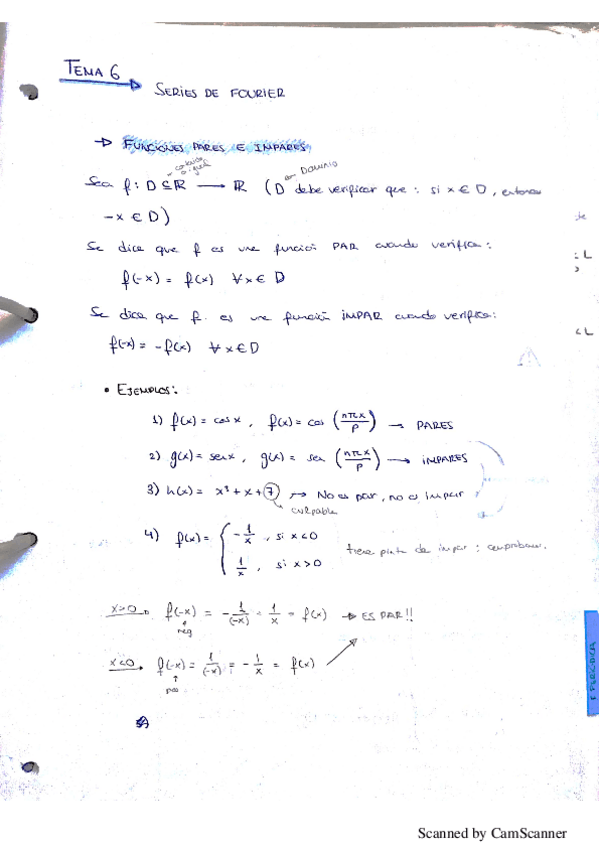 TEMA 6
SERIES DE FOURIER
→ FUNCIONES PARES E IMPARES
o igual
DOMINIO
Sea f: D ⊆ ℝ → ℝ (D debe verificar que: si x ∈ D, entonces
-x ∈ D)
Se dice que f es una función PAR cuando verifica:
f(-x) = f(x) ∀x ∈ D
Se dice que f es una función IMPAR cuando verifica:
f(-x) = -f(x) ∀x ∈ D
• EJEMPLOS:
1) f(x) = cos x, f(x) = cos (nπx/p) → PARES
2) g(x) = sen x, g(x) = sen (nπx/p) → IMPARES
3) h(x) = x³ + x + 7 → No es par, no es impar
culpable
4) f(x) = { -1/x, si x<0
1/x, si x>0
tiene pinta de impar: comprobamos.
x>0. f(-x) = -1/(-x) = 1/x = f(x) → ES PAR!!
neg
x<0. f(-x) = 1/(-x) = -1/x = f(x)
pos
Scanned by CamScanner